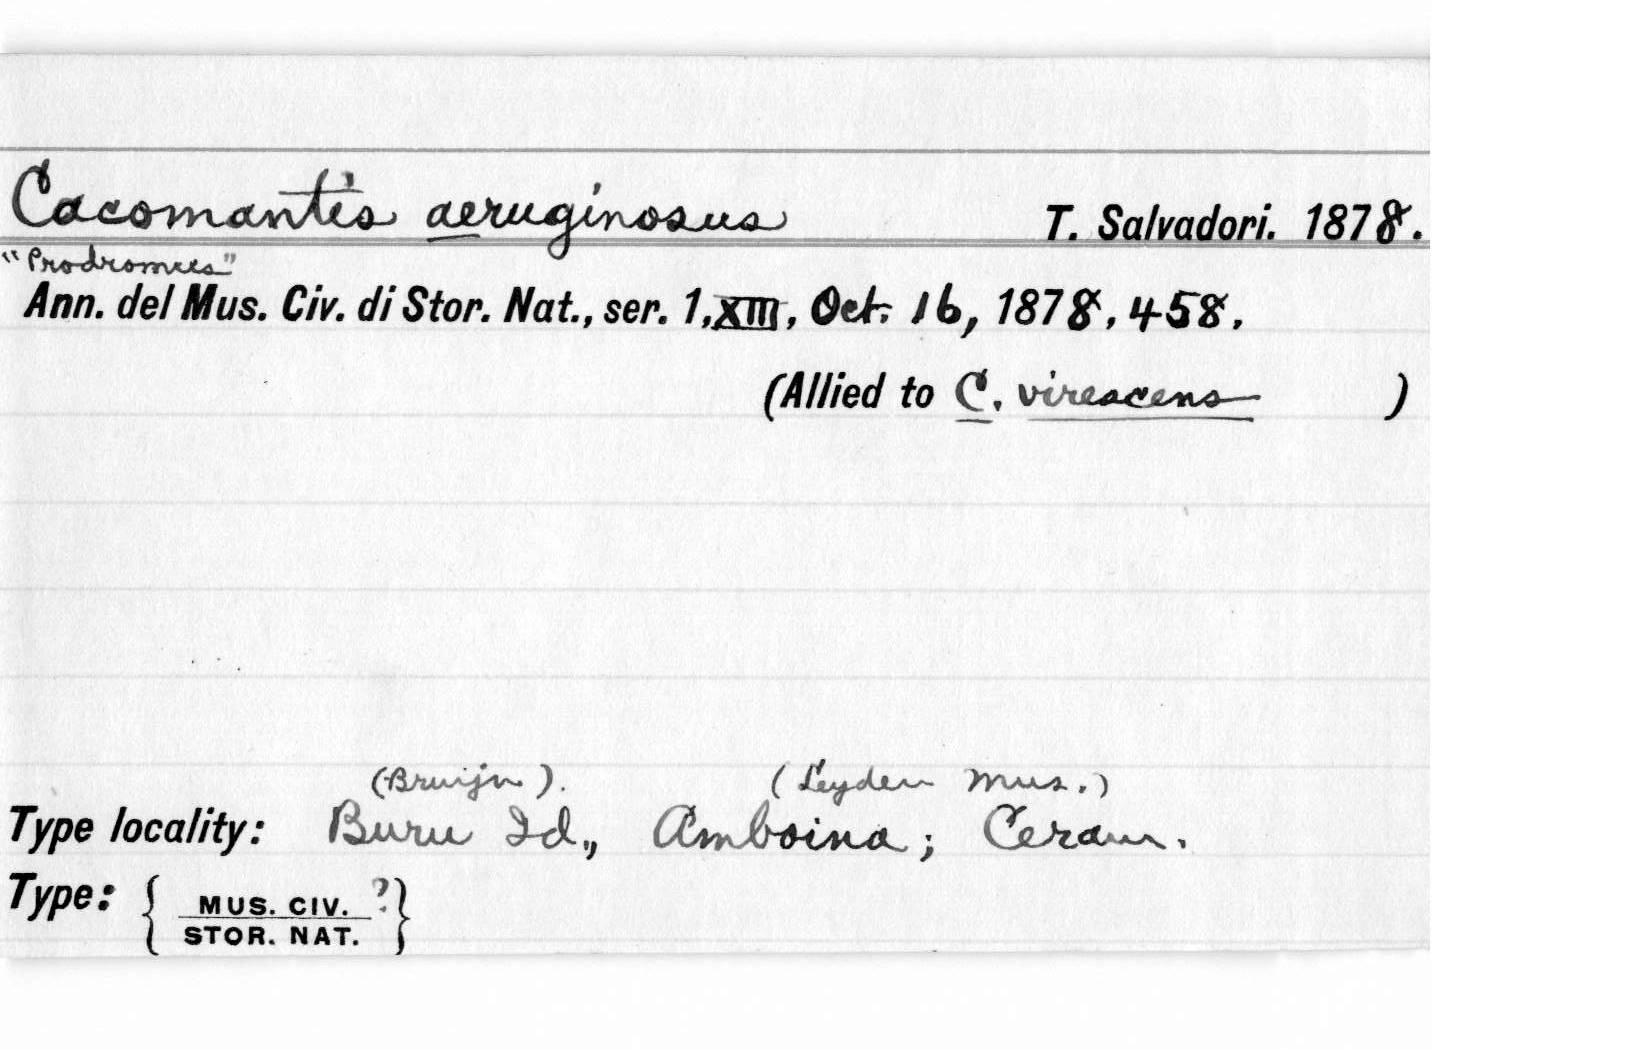 Cacomantis aeruginosus T. Salvadori. 1878.
"Prodromus"
Ann. del Mus. Civ. di Stor. Nat., ser. 1, XIII, Oct. 16, 1878, 458.
(Allied to C. virescens )
(Bruijn). (Leyden Mus.)
Type locality: Buru Id., Amboina; Ceram.
Type: { MUS. CIV. ? }
STOR. NAT.